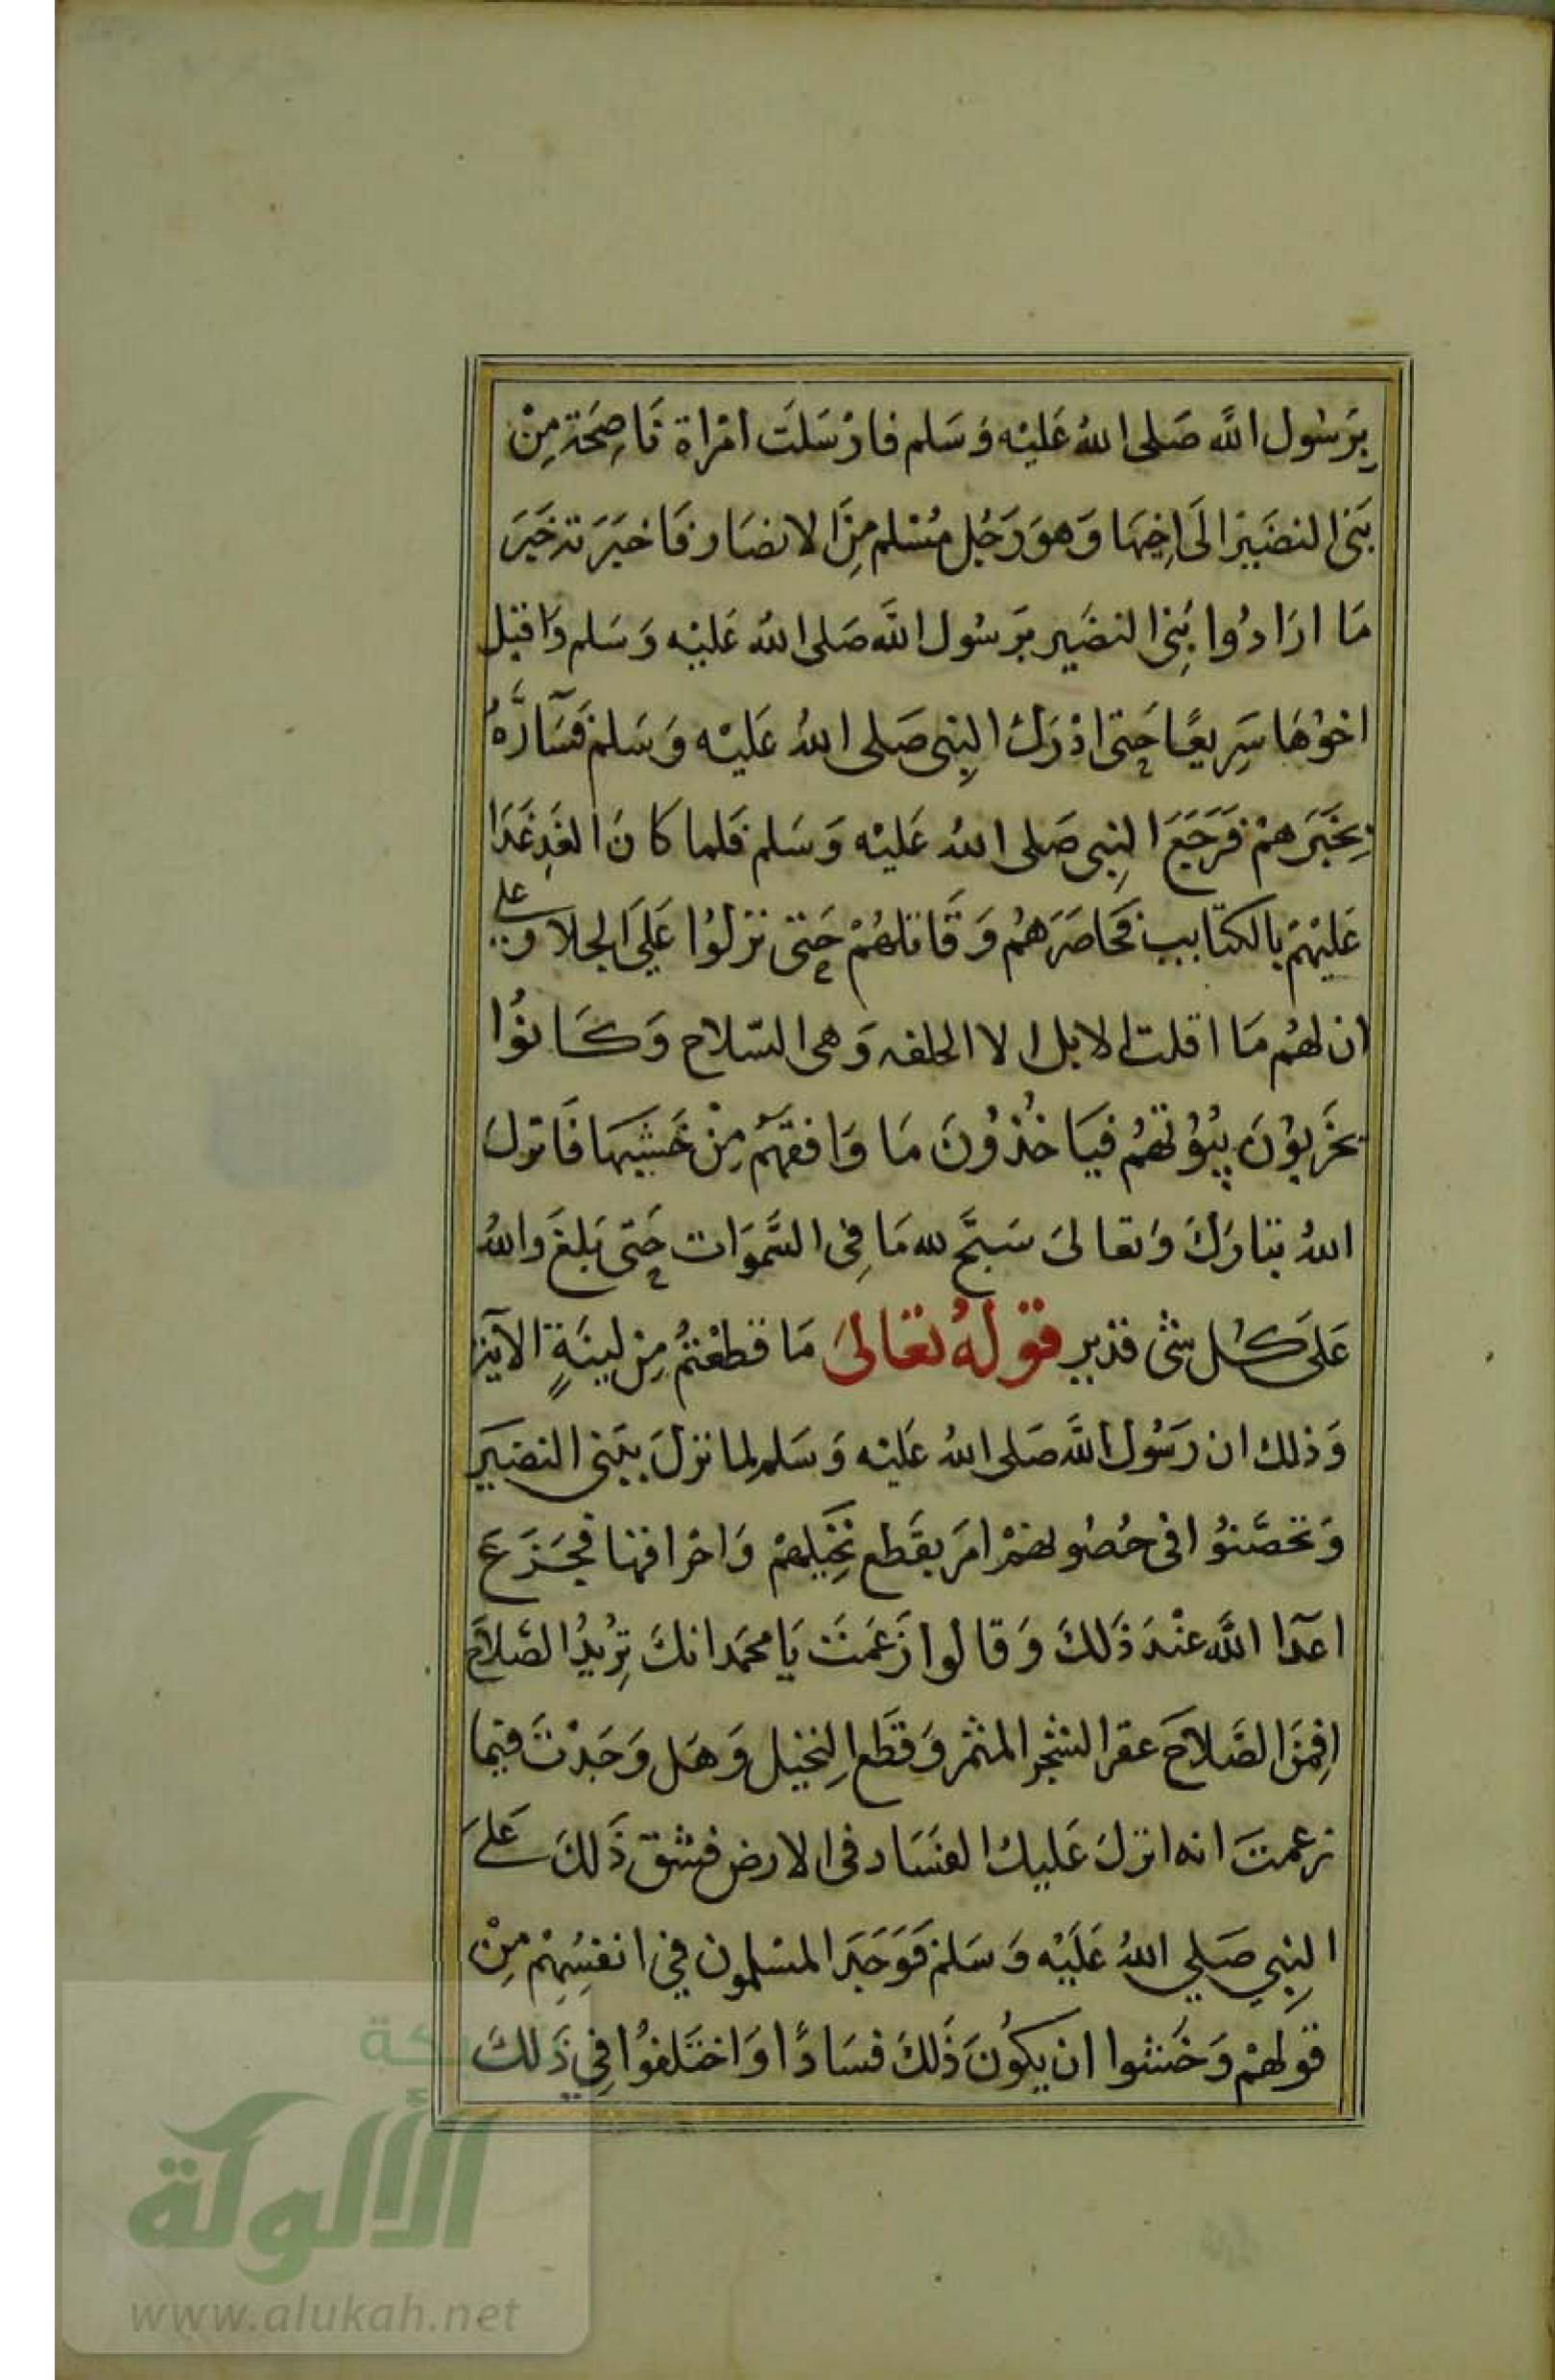 بِرَسُول اللَّه صَلى اللهُ عَليْه وَسَلم فارْسَلَت امْراة نَاصِحَة مِنْ
بَنى النضَيْر الَى اخِيهَا وَهوَ رَجُل مُسْلم مِنَ الانصَار فَاخبَرَته خَبَرَ
مَا ارَادُوا بَنِى النضَير بَرسُول اللَّه صَلى اللهُ عَليْه وَسَلم وَاقبَل
اخوُهَا سَرِيعًا حَتى ادْرَك النِبى صَلى اللهُ عَليْه وَسَلم فَسَآرَّهُ
بِخَبَرهمْ فَرَجَعَ النِبى صَلى اللهُ عَليْه وَسَلم فَلما كَانَ الغَدِ غَدَا
عَليْهمْ بالكتَايب فحَاصَرَهمُ وَقَاتَلهُمْ حَتى نزلوُا عَلَى الجلا وعلى
ان لهُم مَا اقلت الابل الا الحلقه وَهى السّلاح وَكَانوُا
يخَربوُن بيُوُتَهمُ فيَاخُذوُنَ مَا وَافقهَمُ مِنْ خَشبهَا فَانزل
اللهُ تبَارَكَ وَتعَالىَ سَبَّحَ لله مَا فِى السَّموَات حَتى بَلغَ وَاللهُ
عَلَى كُل شئ قدير قوْلهُ تعَالىَ مَا قطعْتمُ مِنْ لينَةٍ الآية
وَذلك ان رَسُول اللَّه صَلى اللهُ عَليْه وَسَلم لما نزلَ ببَنى النضَيَر
وَتحَصَّنوُا فى حُصُونهمْ امَر بقَطع نَخِيلهمْ وَاحْراقهَا فَجَزعَ
اعدآ اللَّه عنْدَ ذَلكَ وَقالوا زَعَمتَ يَا محمَد انكَ تِريْدُ الصَّلاحَ
افِمنَ الصَّلاحَ عقر الشجر المثمْر وَقَطع النِخيل وَهَل وَجَدْتَ فيمَا
زعمتَ انه انزلَ عَليك الفسَاد فى الارض فشقّ ذَلكَ عَلىَ
النِبي صَلي اللهُ عَلَيْه وَسَلم فَوَجَدَ المسْلمون في انفسِهمْ مِنْ
قوْلهمْ وَخَشوا ان يكوُنَ ذَلكَ فسَادًا وَاختَلفوُا فِي ذَلكَ
الألوكة
www.alukah.net